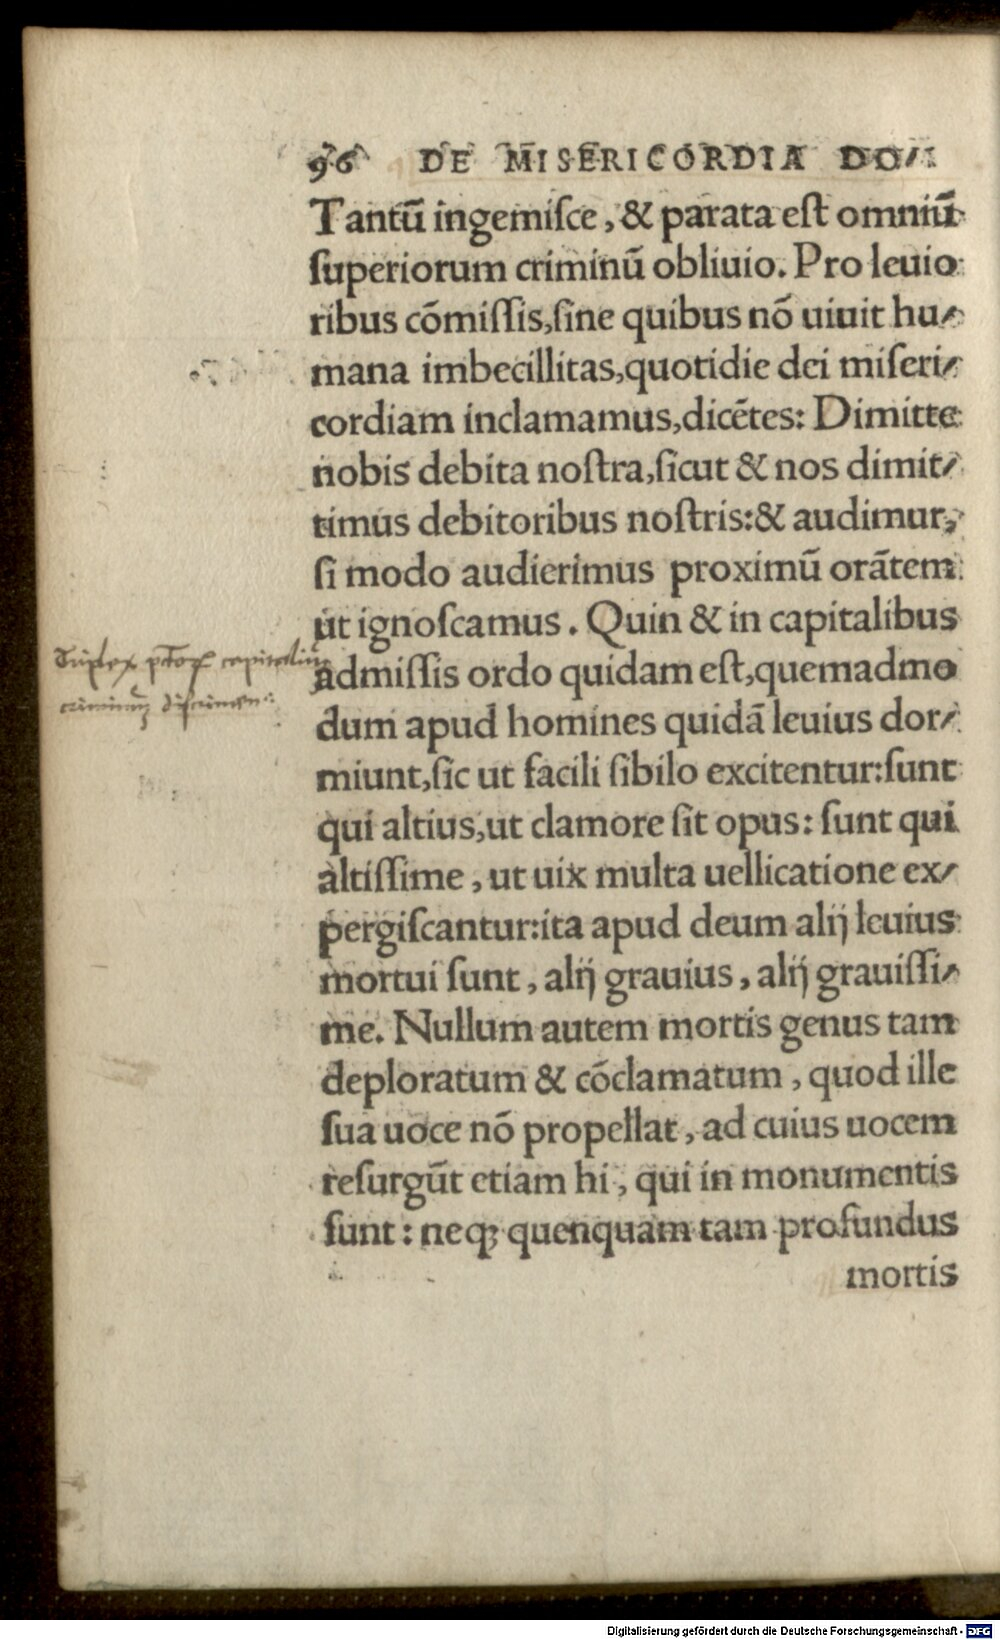 96 DE MISERICORDIA DO/
Tantū ingemiſce, & parata eſt omniū
ſuperiorum criminū obliuio. Pro leuio
ribus cōmiſſis,ſine quibus nō uiuit hu/
mana imbecillitas,quotidie dei miſeri/
cordiam inclamamus,dicētes: Dimitte
nobis debita noſtra,ſicut & nos dimit/
timus debitoribus noſtris:& audimur,
ſi modo audierimus proximū orātem
ut ignoſcamus. Quin & in capitalibus
admiſſis ordo quidam eſt,quemadmo
dum apud homines quidā leuius dor/
miunt,ſic ut facili ſibilo excitentur:ſunt
qui altius,ut clamore ſit opus: ſunt qui
altiſſime, ut uix multa uellicatione ex/
pergiſcantur:ita apud deum alij leuius
mortui ſunt, alij grauius, alij grauiſſi/
me. Nullum autem mortis genus tam
deploratum & cōclamatum, quod ille
ſua uoce nō propellat, ad cuius uocem
reſurgūt etiam hi, qui in monumentis
ſunt: neqꝫ quenquam tam profundus
mortis
capitaliū
criminum diſcrimen
Digitalisierung gefördert durch die Deutsche Forschungsgemeinschaft - DFG